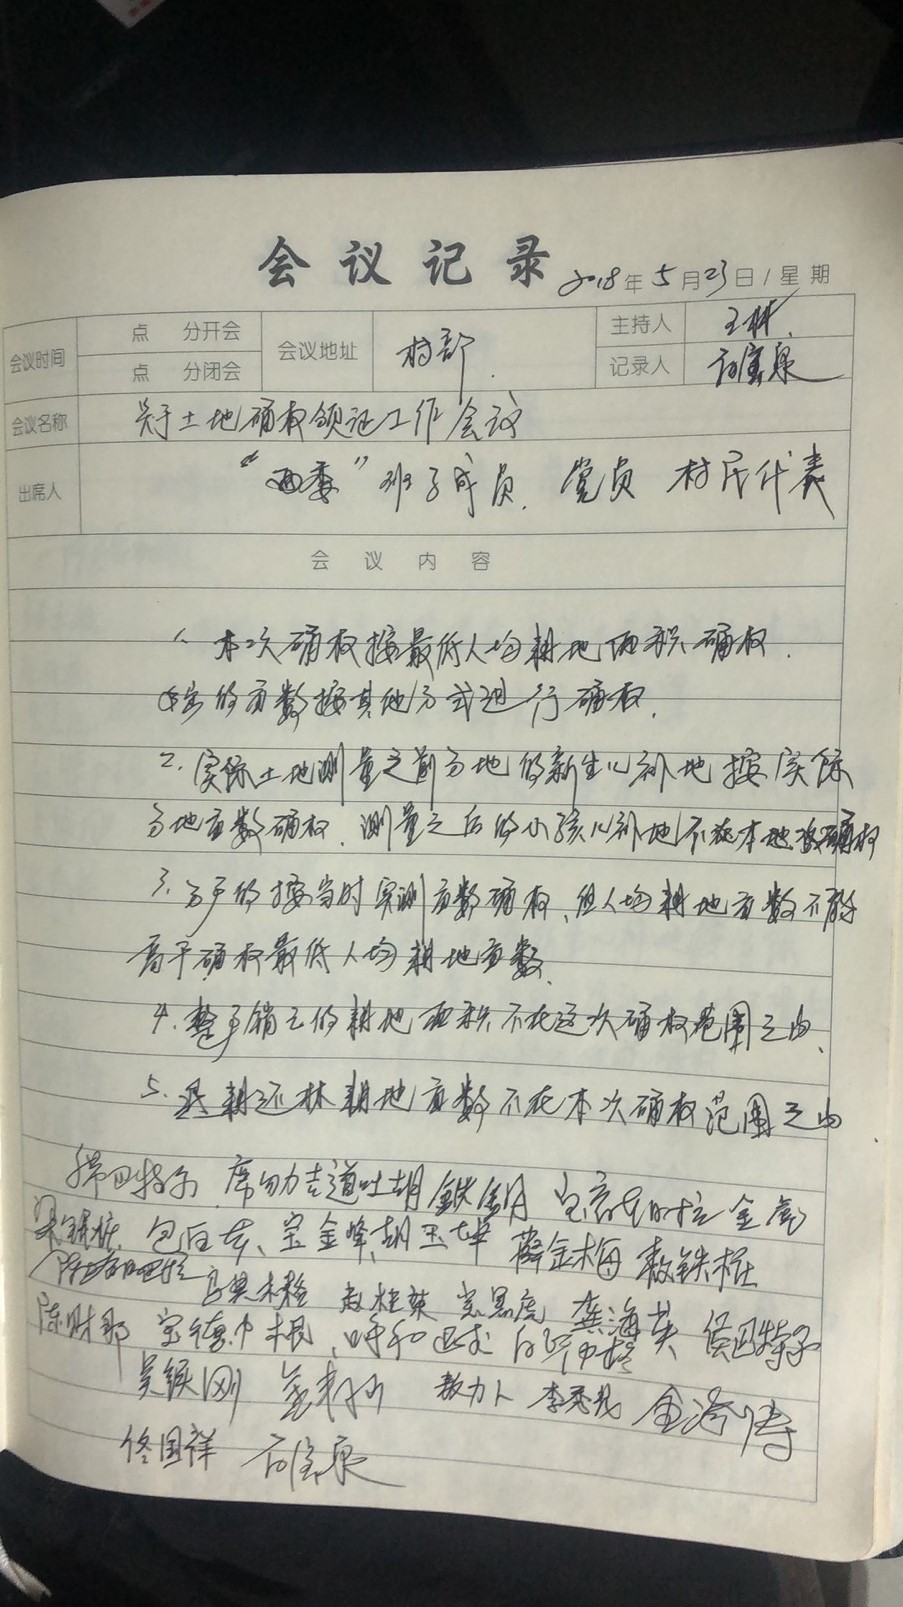 会议记录
2018年5月23日/星期
会议时间 点 分开会 会议地址 村部. 主持人 王林
点 分闭会 记录人
会议名称 关于土地确权领证工作会议
出席人 "两委"班子成员. 党员 村民代表
会议内容
1. 本次确权按最低人均耕地面积确权.
的亩数按其他方式进行确权.
2. 实际土地测量之前分地的新生儿补地按实际
分地亩数确权. 测量之后的小孩儿补地不在本地确权
3. 分户的按当时实测亩数确权、但人均耕地亩数不能
高于确权最低人均耕地亩数.
4. 整户销亡的耕地面积不在这次确权范围之内、
5. 退耕还林耕地亩数不在本次确权范围之内
席勿力吉道吐胡 金虎
宝金峰 胡玉峰 薛金梅 敖铁柱
赵桂英 龚海英
陈财那 宝德巾根
吴银刚 敖力人 李秀我
佟国祥